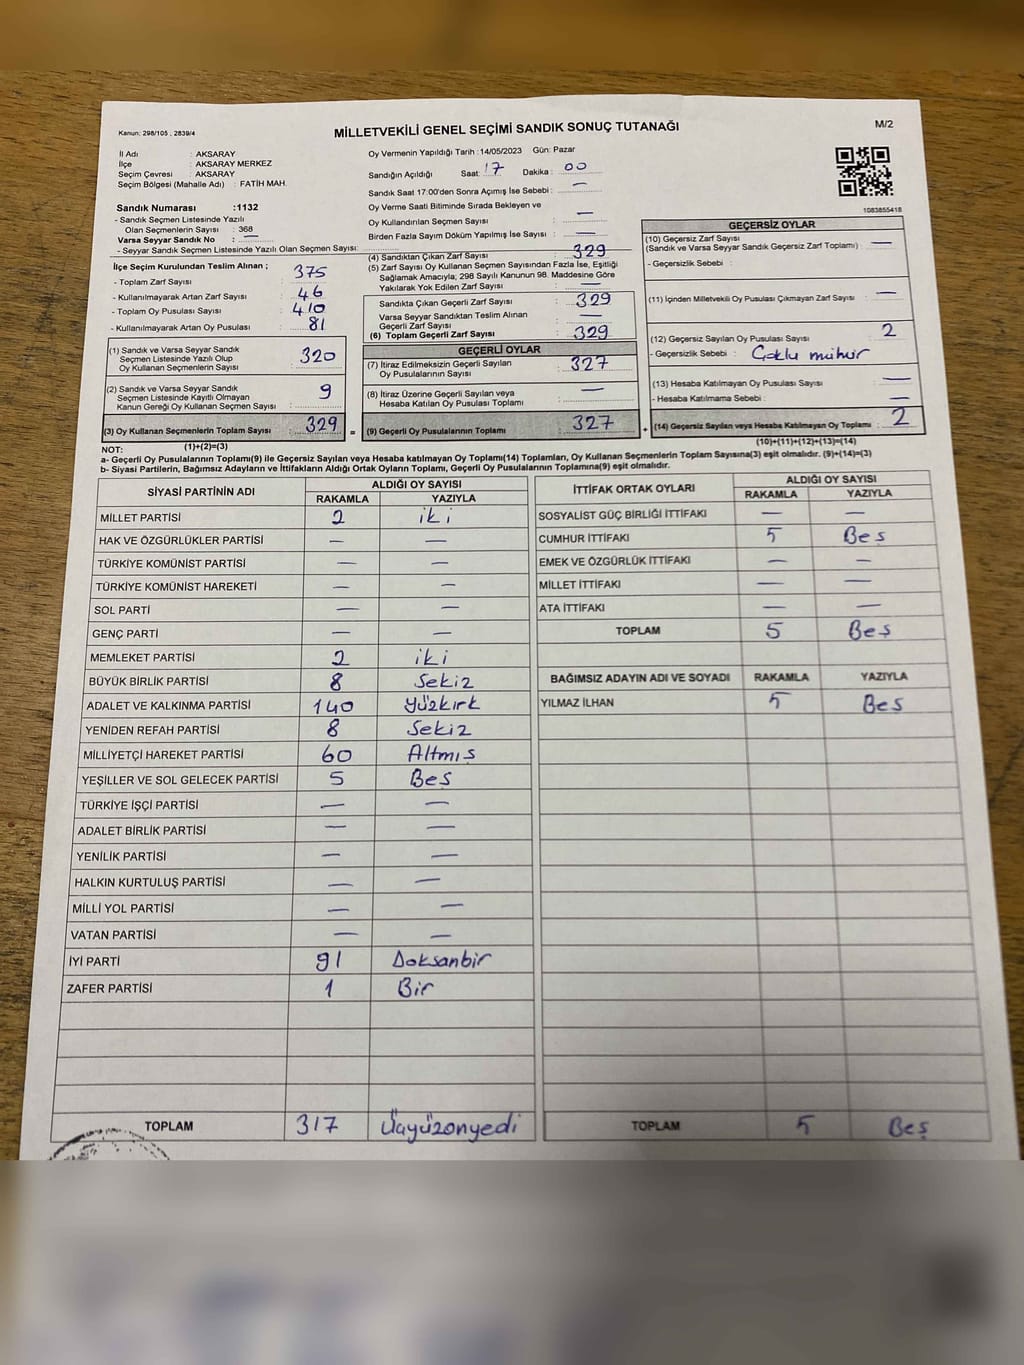 Kanun: 298/105 , 2839/4
MİLLETVEKİLİ GENEL SEÇİMİ SANDIK SONUÇ TUTANAĞI
M/2
İl Adı : AKSARAY
İlçe : AKSARAY MERKEZ
Seçim Çevresi : AKSARAY
Seçim Bölgesi (Mahalle Adı) : FATİH MAH.
Sandık Numarası :1132
- Sandık Seçmen Listesinde Yazılı
Olan Seçmenlerin Sayısı : 368
Varsa Seyyar Sandık No : —
- Seyyar Sandık Seçmen Listesinde Yazılı Olan Seçmen Sayısı:
Oy Vermenin Yapıldığı Tarih :14/05/2023 Gün: Pazar
Sandığın Açıldığı Saat: 17 Dakika : 00
Sandık Saat 17:00'den Sonra Açımış İse Sebebi : —
Oy Verme Saati Bitiminde Sırada Bekleyen ve
Oy Kullandırılan Seçmen Sayısı : —
Birden Fazla Sayım Döküm Yapılmış İse Sayısı : —
1083855418
İlçe Seçim Kurulundan Teslim Alınan ;
- Toplam Zarf Sayısı : 375
- Kullanılmayarak Artan Zarf Sayısı : 46
- Toplam Oy Pusulası Sayısı : 410
- Kullanılmayarak Artan Oy Pusulası : 81
(1) Sandık ve Varsa Seyyar Sandık
Seçmen Listesinde Yazılı Olup
Oy Kullanan Seçmenlerin Sayısı : 320
(2) Sandık ve Varsa Seyyar Sandık
Seçmen Listesinde Kayıtlı Olmayan
Kanun Gereği Oy Kullanan Seçmen Sayısı : 9
(3) Oy Kullanan Seçmenlerin Toplam Sayısı : 329
(1)+(2)=(3)
(4) Sandıktan Çıkan Zarf Sayısı : 329
(5) Zarf Sayısı Oy Kullanan Seçmen Sayısından Fazla İse, Eşitliği
Sağlamak Amacıyla; 298 Sayılı Kanunun 98. Maddesine Göre
Yakılarak Yok Edilen Zarf Sayısı : —
Sandıkta Çıkan Geçerli Zarf Sayısı : 329
Varsa Seyyar Sandıktan Teslim Alınan
Geçerli Zarf Sayısı : —
(6) Toplam Geçerli Zarf Sayısı : 329
GEÇERLİ OYLAR
(7) İtiraz Edilmeksizin Geçerli Sayılan
Oy Pusulalarının Sayısı : 327
(8) İtiraz Üzerine Geçerli Sayılan veya
Hesaba Katılan Oy Pusulası Toplamı : —
= (9) Geçerli Oy Pusulalarının Toplamı : 327 +
GEÇERSİZ OYLAR
(10) Geçersiz Zarf Sayısı
(Sandık ve Varsa Seyyar Sandık Geçersiz Zarf Toplamı) : —
- Geçersizlik Sebebi :
(11) İçinden Milletvekili Oy Pusulası Çıkmayan Zarf Sayısı : —
(12) Geçersiz Sayılan Oy Pusulası Sayısı : 2
- Geçersizlik Sebebi : Çoklu mühür
(13) Hesaba Katılmayan Oy Pusulası Sayısı : —
- Hesaba Katılmama Sebebi : —
(14) Geçersiz Sayılan veya Hesaba Katılmayan Oy Toplamı : 2
(10)+(11)+(12)+(13)=(14)
NOT:
a- Geçerli Oy Pusulalarının Toplamı(9) ile Geçersiz Sayılan veya Hesaba katılmayan Oy Toplamı(14) Toplamları, Oy Kullanan Seçmenlerin Toplam Sayısına(3) eşit olmalıdır. (9)+(14)=(3)
b- Siyasi Partilerin, Bağımsız Adayların ve İttifakların Aldığı Ortak Oyların Toplamı, Geçerli Oy Pusulalarının Toplamına(9) eşit olmalıdır.
SİYASİ PARTİNİN ADI ALDIĞI OY SAYISI
RAKAMLA YAZIYLA
MİLLET PARTİSİ 2 iki
HAK VE ÖZGÜRLÜKLER PARTİSİ — —
TÜRKİYE KOMÜNİST PARTİSİ — —
TÜRKİYE KOMÜNİST HAREKETİ — —
SOL PARTİ — —
GENÇ PARTİ — —
MEMLEKET PARTİSİ 2 iki
BÜYÜK BİRLİK PARTİSİ 8 Sekiz
ADALET VE KALKINMA PARTİSİ 140 Yüzkırk
YENİDEN REFAH PARTİSİ 8 Sekiz
MİLLİYETÇİ HAREKET PARTİSİ 60 Altmış
YEŞİLLER VE SOL GELECEK PARTİSİ 5 Beş
TÜRKİYE İŞÇİ PARTİSİ — —
ADALET BİRLİK PARTİSİ — —
YENİLİK PARTİSİ — —
HALKIN KURTULUŞ PARTİSİ — —
MİLLİ YOL PARTİSİ — —
VATAN PARTİSİ — —
İYİ PARTİ 91 Doksanbir
ZAFER PARTİSİ 1 Bir
TOPLAM 317 Üçyüzonyedi
İTTİFAK ORTAK OYLARI ALDIĞI OY SAYISI
RAKAMLA YAZIYLA
SOSYALİST GÜÇ BİRLİĞİ İTTİFAKI — —
CUMHUR İTTİFAKI 5 Beş
EMEK VE ÖZGÜRLÜK İTTİFAKI — —
MİLLET İTTİFAKI — —
ATA İTTİFAKI — —
TOPLAM 5 Beş
BAĞIMSIZ ADAYIN ADI VE SOYADI RAKAMLA YAZIYLA
YILMAZ İLHAN 5 Beş
TOPLAM 5 Beş